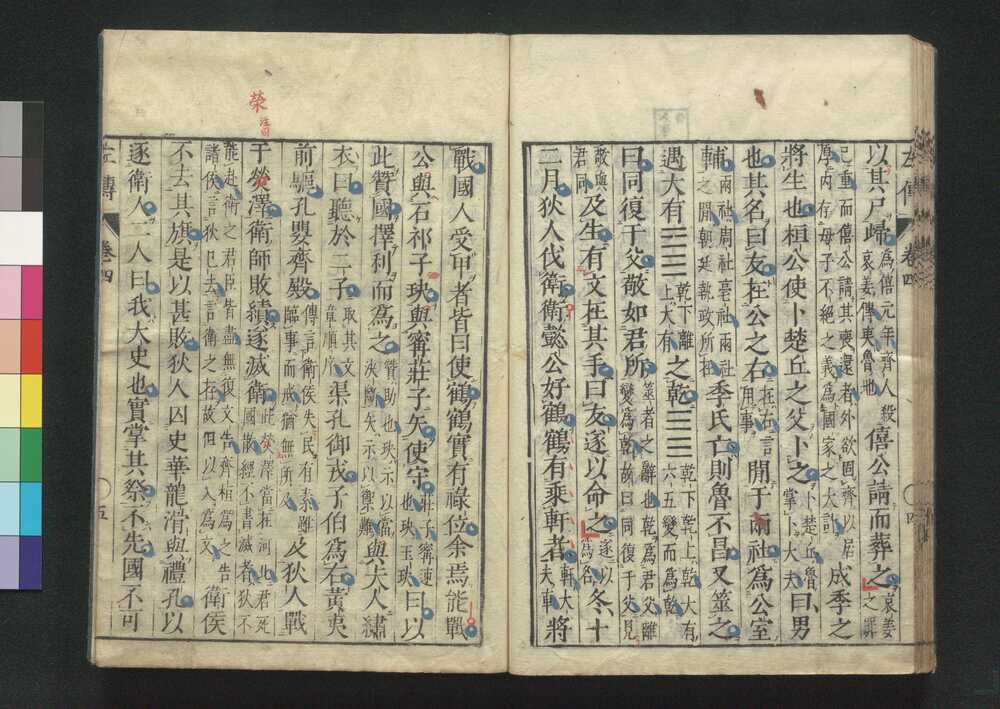 左傳 卷四 四
以其尸歸為僖元年齊人殺哀姜傳夷魯地僖公請而葬之哀姜之罪
已重而僖公請其喪還者外欲固齊以居厚内存母子不絶之義為國家之大計成季之
將生也桓公使卜楚丘之父卜之卜楚丘魯掌卜大夫曰男
也其名曰友在公之右在右言用事間于兩社為公室
輔兩社周社亳社兩社之間朝廷執政所在季氏亡則魯不昌又筮之
遇大有䷍乾下離上大有之乾䷀乾下乾上乾大有六五變而為乾
曰同復于父敬如君所筮者之辭也乾為君父離變為乾故曰同復于父見
敬與君同及生有文在其手曰友遂以命之遂以為名冬十
二月狄人伐衛衛懿公好鶴鶴有乘軒者軒大夫車將
戰國人受甲者皆曰使鶴鶴實有祿位余焉能戰
公與石祁子玦與甯莊子矢使守莊子甯速也玦玉玦曰以
此贊國擇利而為之贊助也玦示以當決斷矢示以禦難與夫人繡
衣曰聽於二子取其文章順序渠孔御戎子伯為右黃夷
前驅孔嬰齊殿傳言衛侯失民有素雖臨事而戒猶無所及及狄人戰
于熒澤衛師敗績遂滅衛此熒澤當在河北君死國散經不書滅者狄不
能赴衛之君臣皆盡無復文告齊桓為之告諸侯言狄已去言衛之存故但以入為文衛侯
不去其旗是以甚敗狄人囚史華龍滑與禮孔以
逐衛人二人曰我大史也實掌其祭不先國不可
左傳 卷四 五
榮